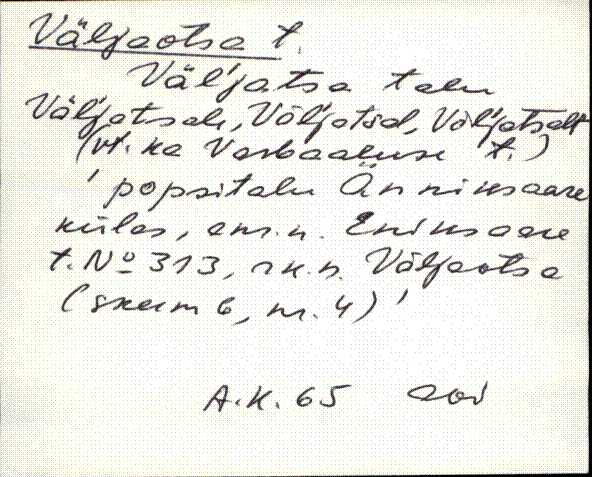 Väljaotsa t.
Väl'jatsa talu
Väl'jatsale, Väl'jatsel, Väl'jatselt
(vt. ka Varbaaluse t.)
' popsitalu Änniksaare
külas, am.n. Eniksaare
t. Nº 313, rk.n. Väljaotsa
(skeem 6, nr. 4) '
A.K. 65